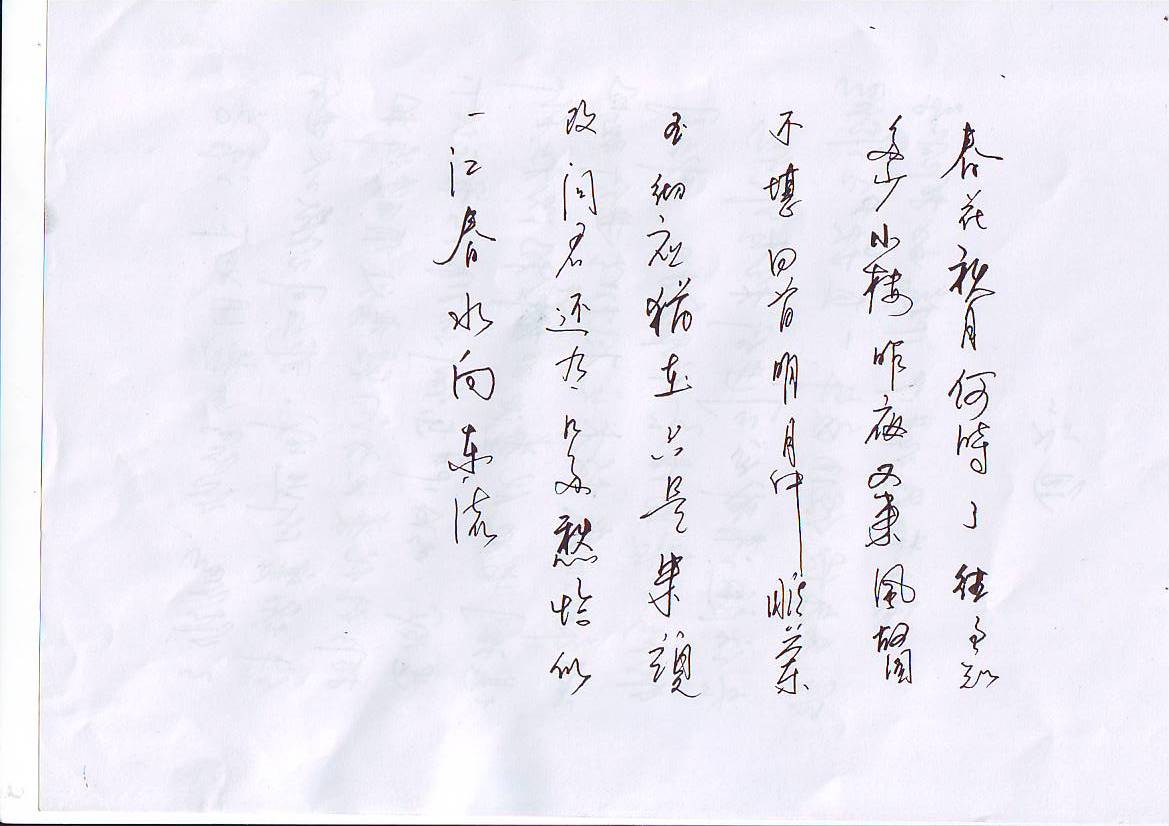 春花秋月何時了往事知
多少小楼昨夜又東風故國
不堪回首明月中雕蘭
玉砌应猶在只是朱顏
改问君还有几多愁恰似
一江春水向东流